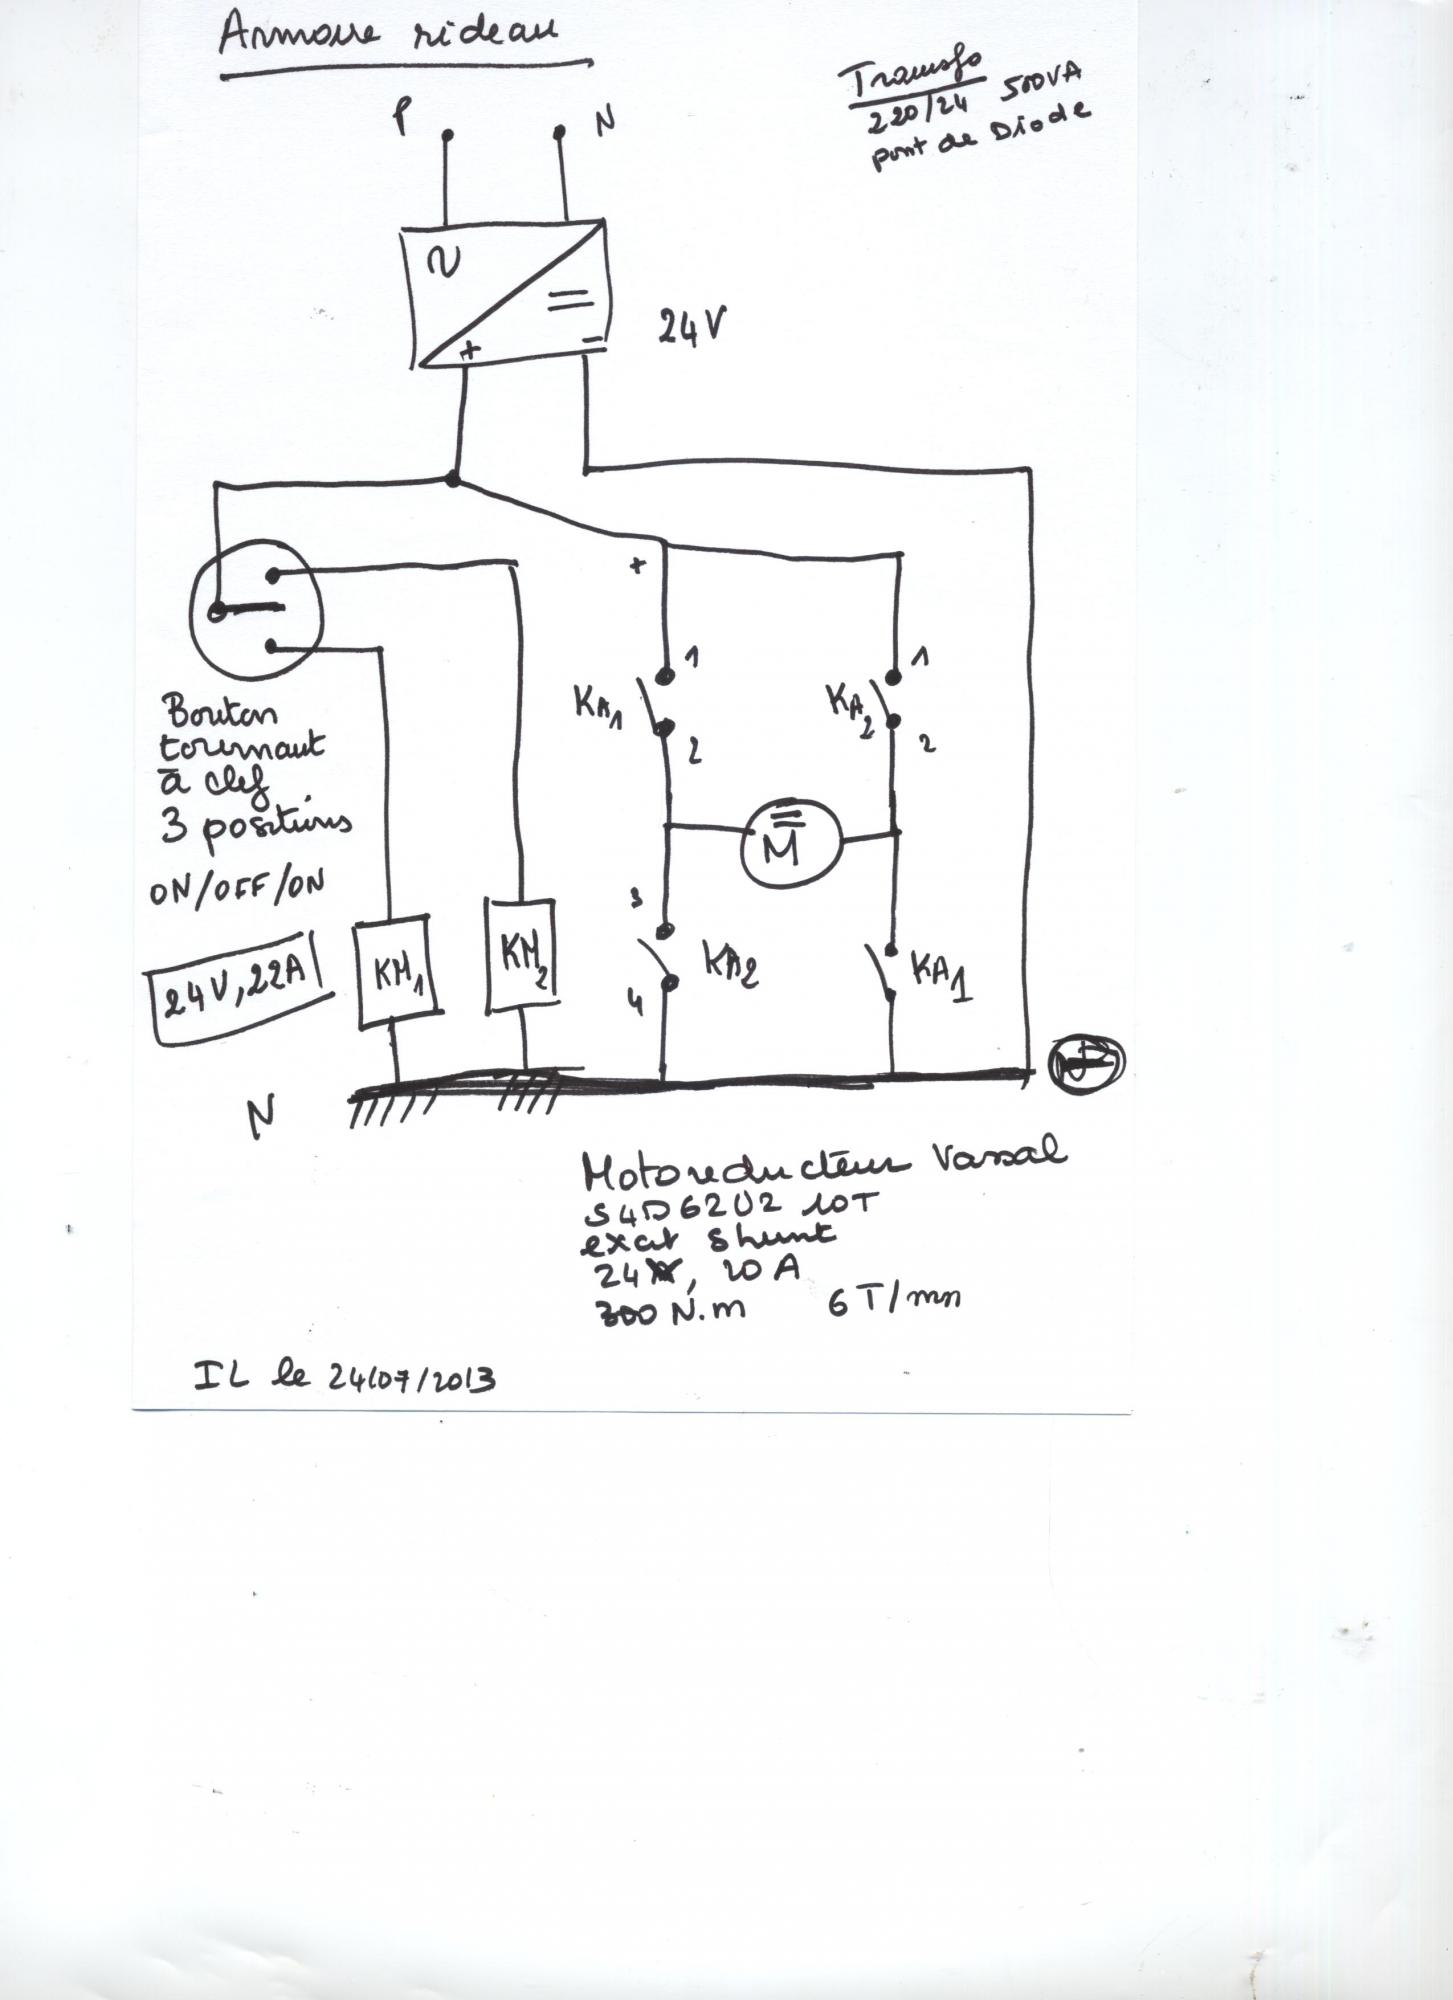 Armoire rideau
Transfo
220/24 500VA
pont de Diode
P N
+ -
24V
+
1 1
KA1 KA2
2 2
Bouton
tournant
à clef
3 positions
ON/OFF/ON
M
24V, 22A
KM1
KM2
3
KA2
4
KA1
N
Motoreducteur Vassal
S4D62U2 10T
excit shunt
24V, 20A
300 N.m 6T/mn
IL le 24/07/2013